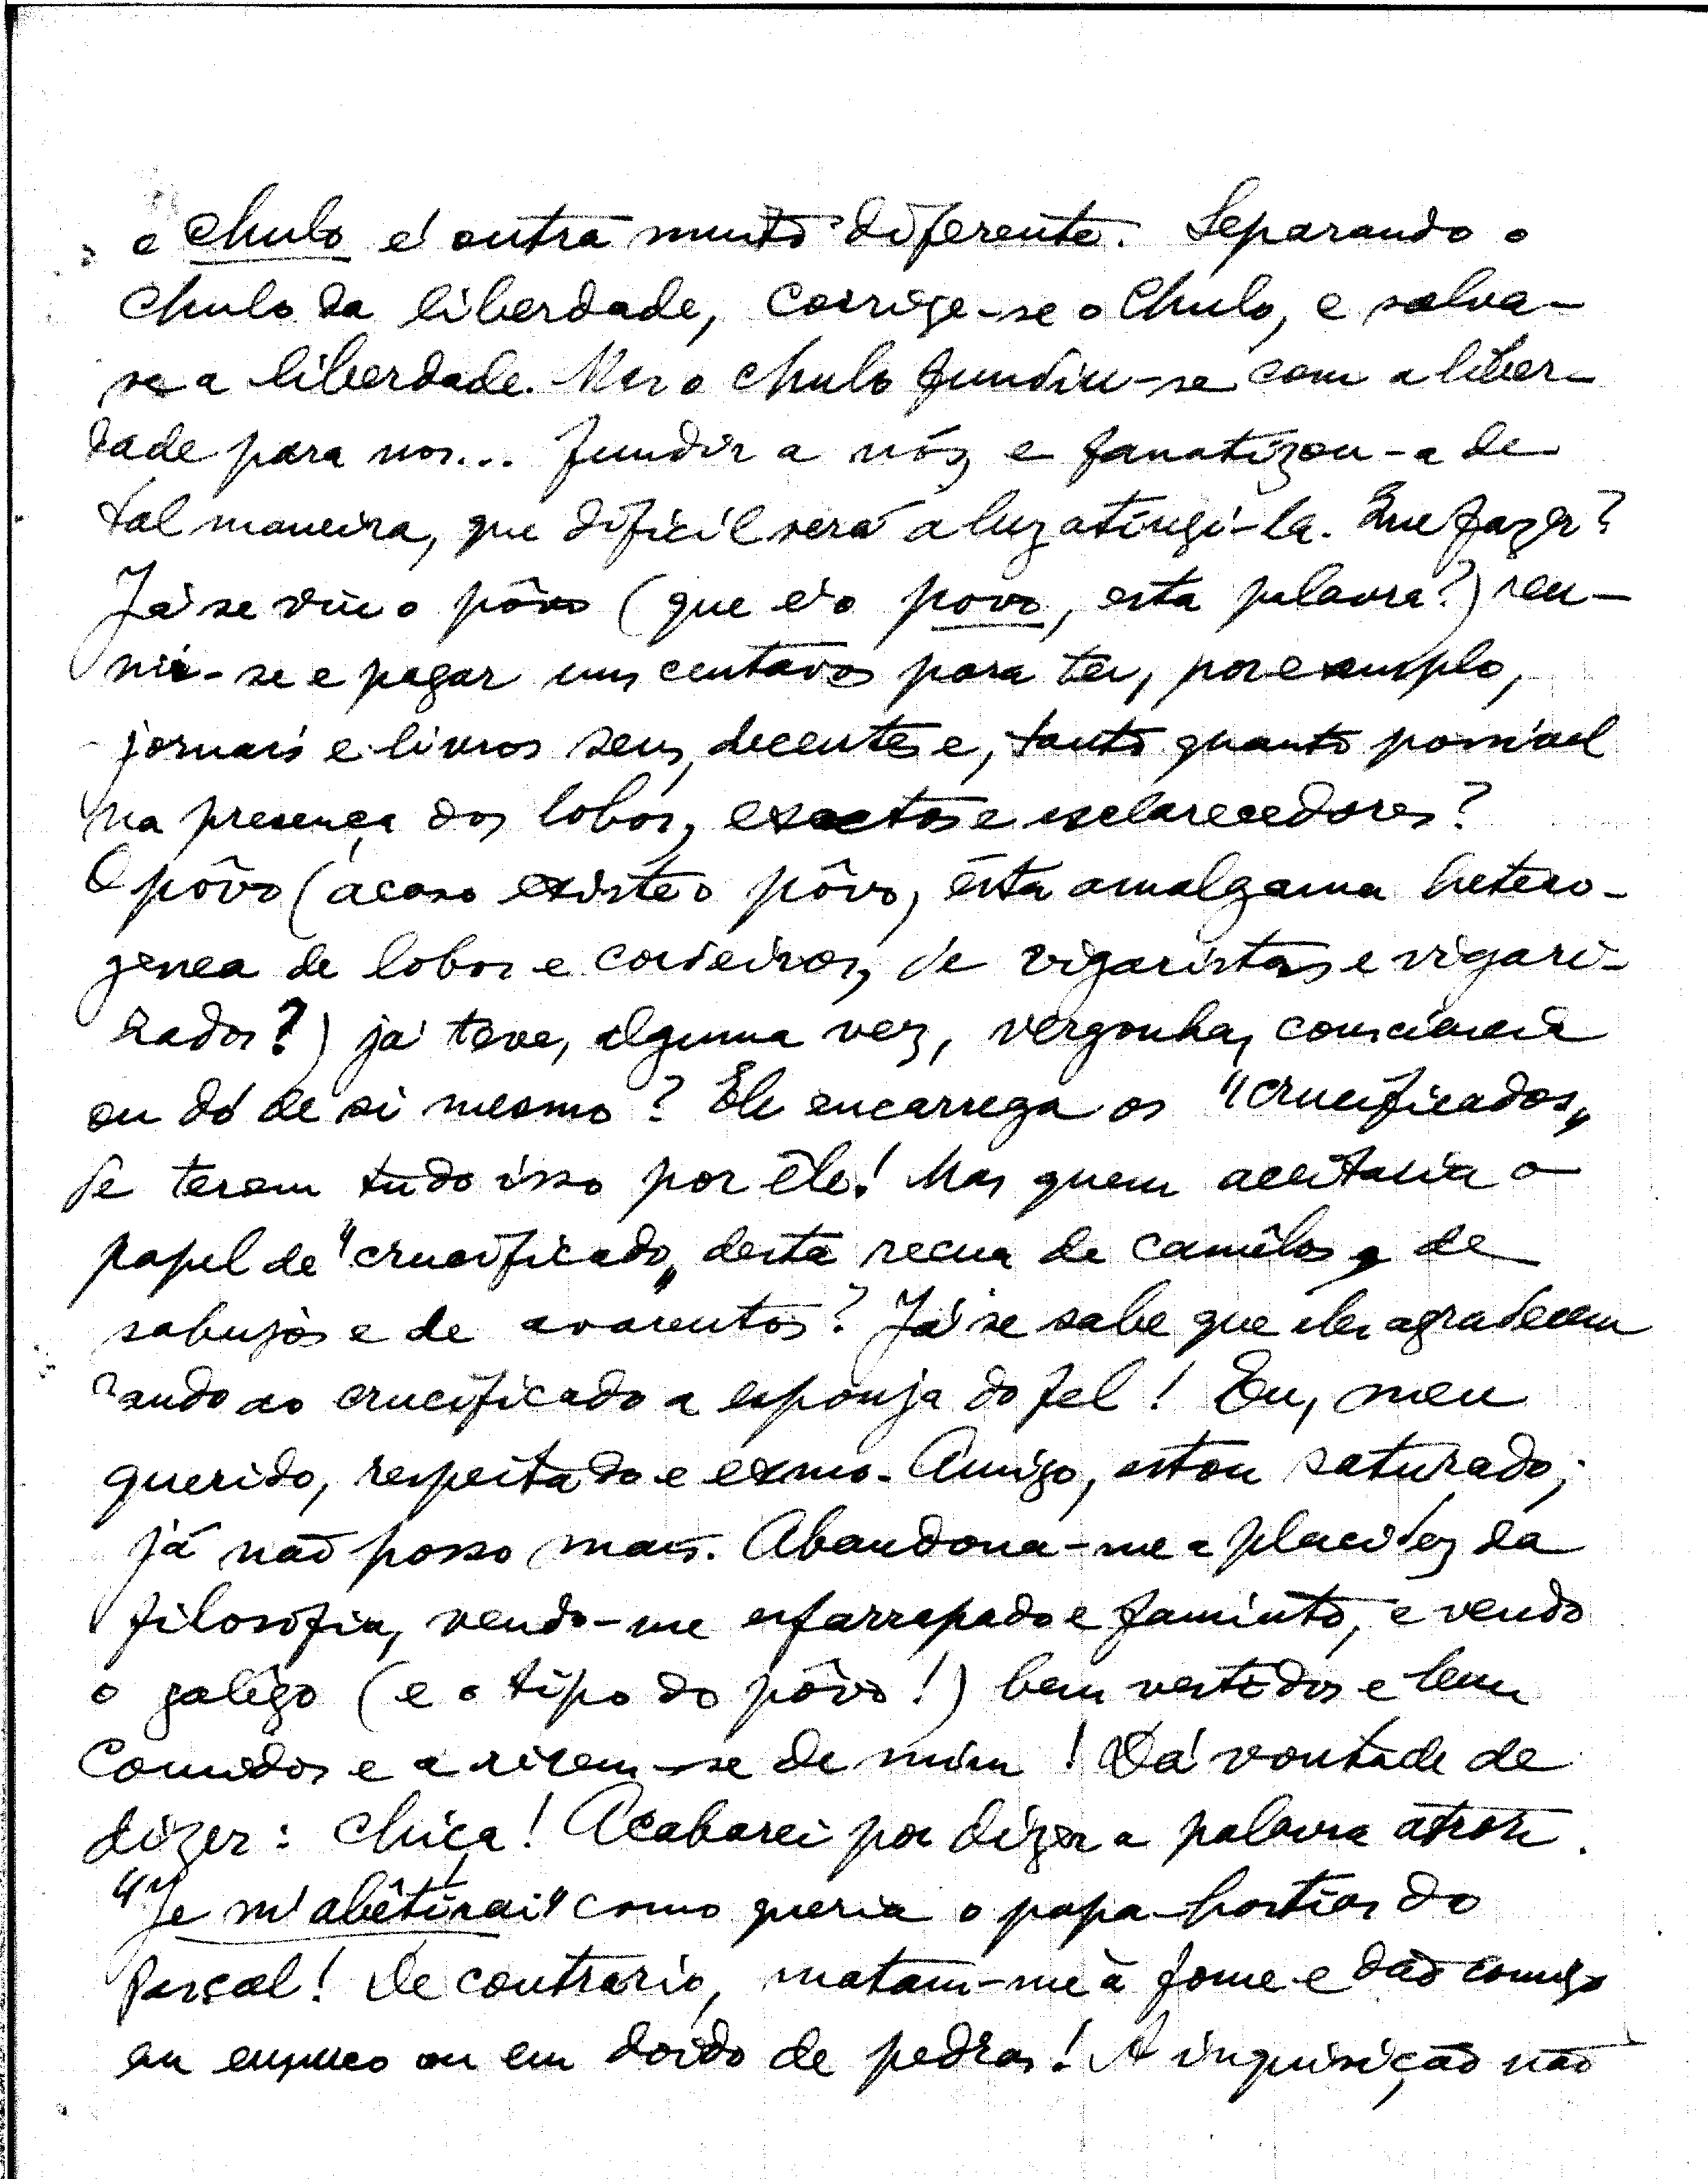 e chulo é outra muito diferente. Separando o
chulo da liberdade, corrige-se o chulo, e salva-
se a liberdade. Mas o chulo fundiu-se com a liber-
dade para nos... fundir a nós e fanatizou-a de
tal maneira, que dificil será a luz atingi-la. Que fazer?
Já se viu o pôvo (que é o povo, esta palavra?) reu-
nir-se e pagar uns centavos para ter, por exemplo,
jornais e livros seus, decentes e, tanto quanto possivel
na presença dos lobos, exactos e esclarecedores?
O pôvo (acaso existe o pôvo, esta amalgama hetero-
genea de lobos e cordeiros, de vigaristas e vigari-
zados?) já teve, alguma vez, vergonha, consciencia
ou dó de si mesmo? Ele encarrega os "crucificados"
de terem tudo isso por êle! Mas quem aceitaria o
papel de "crucificado" desta recua de camêlos e de
sabujos e de avarentos? Já se sabe que eles agradecem
dando ao crucificado a esponja do fel! Eu, meu
querido, respeitado e exmo. Amigo, estou saturado;
já não posso mais. Abandona-me a placidez da
filosofia, vendo-me esfarrapado e faminto, e vendo
o galêgo (e o tipo do pôvo!) bem vestidos e bem
comidos e a rirem-se de mim! Dá vontade de
dizer: chiça! Acabarei por dizer a palavra atroz.
"Je m'abêtirai" como queria o papa-hostias do
Pascal! De contrario, matam-me à fome e dão comigo
em ou em doido de pedras! A inquisição não